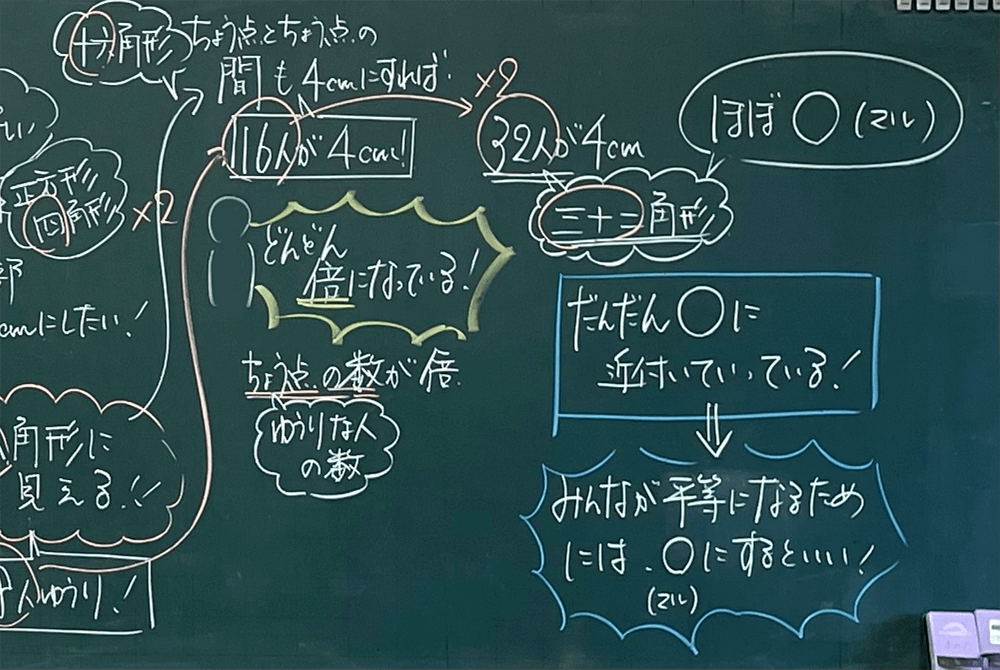 十六角形
ちょう点とちょう点の
間も4cmにすれば
16人が4cm!
×2
32人が4cm
三十二角形
ほぼ〇(マル)
正方形
四角形
×2
cmにしたい!
どんどん
倍になっている!
ちょう点の数が倍
ゆうりな人
の数
角形に
見える!!
人ゆうり!
だんだん〇に
近付いていっている!
みんなが平等になるため
には、〇にするといい!
(マル)